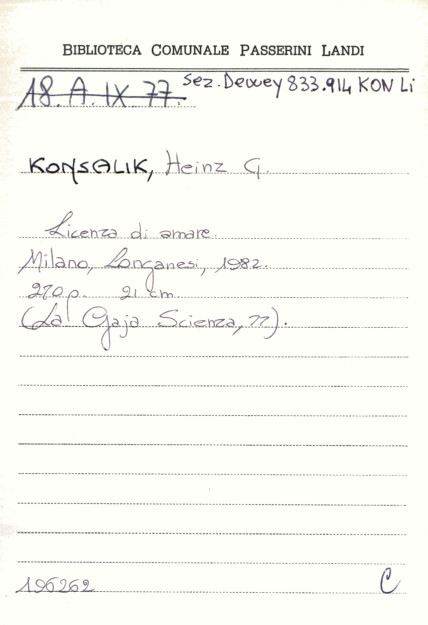 BIBLIOTECA COMUNALE PASSERINI LANDI
18.A.IX 77. Sez. Dewey 833.914 KON Li
KONSALIK, Heinz G.
Licenza di amare.
Milano, Longanesi, 1982.
270 p. 21 cm.
(La Gaja Scienza, 77).
196262 C